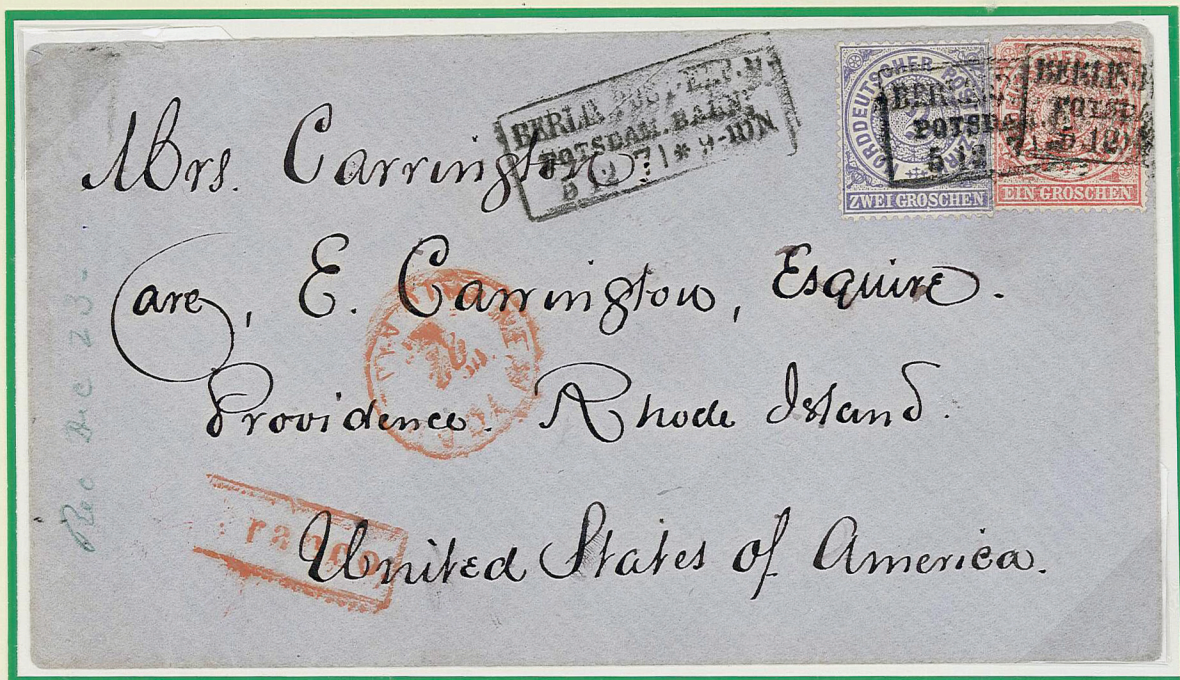 BERLIN POST-EXP.
POTSDAM. BAHN.
5 12 71 * 9-10N
NORDDEUTSCHER POST
ZWEI GROSCHEN
BERLIN
POTSDA
5 12 71
EIN GROSCHEN
BERLIN
POTSDA
5 12
Mrs. Carrington.
Care, E. Carrington, Esquire.
Providence. Rhode Island.
United States of America.
Franco
Rec Dec 23-